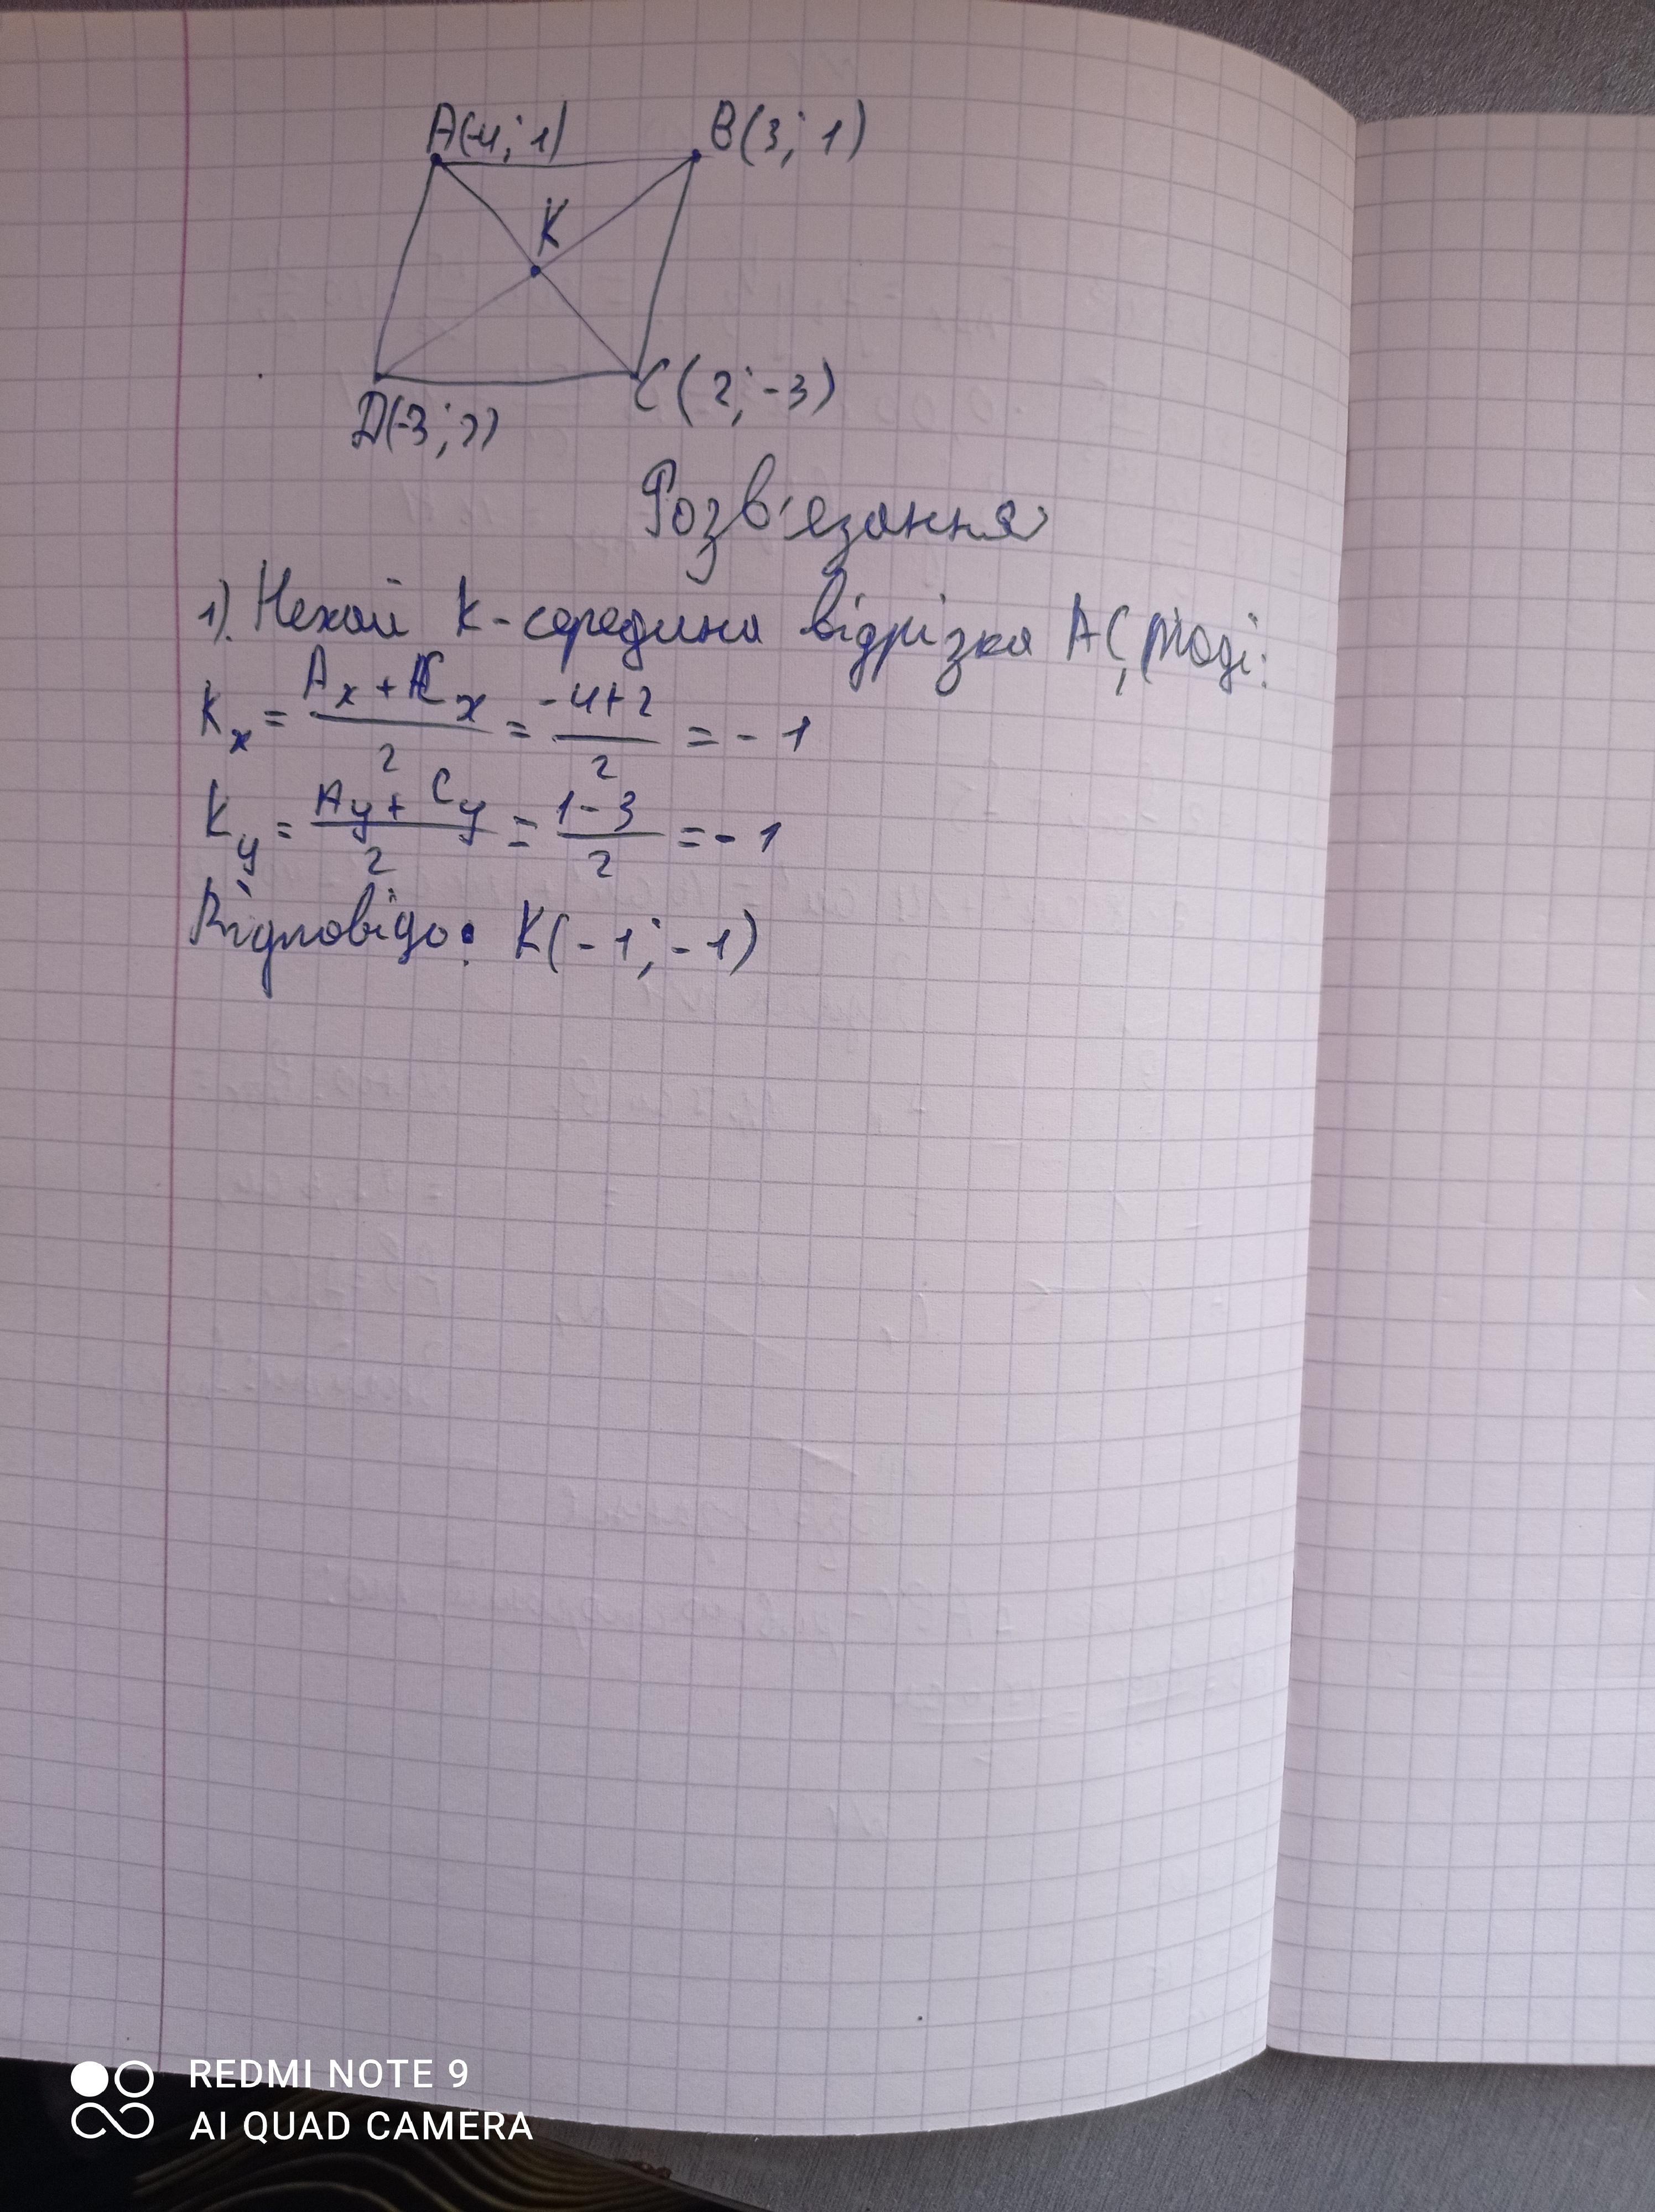 A(-4; 1) B(3; 1)
K
D(-3; ?) C(2; -3)
Розв'язання
1). Нехай K - середина відрізка AC, тоді:
Kx = Ax + Cx / 2 = -4+2 / 2 = - 1
Ky = Ay + Cy / 2 = 1-3 / 2 = - 1
Відповідь: K(-1; -1)
REDMI NOTE 9
AI QUAD CAMERA